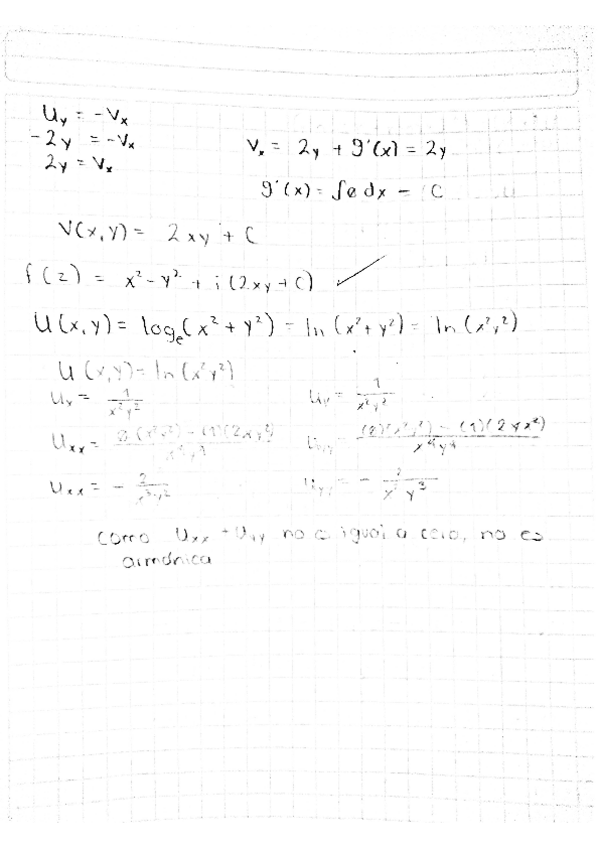 Uy = -Vx
-2y = -Vx
2y = Vx
Vx = 2y + g'(x) = 2y
g'(x) = ∫0 dx = C
V(x,y) = 2xy + C
f(z) = x² - y² + i(2xy + C) ✓
U(x,y) = logₑ(x² + y²) = ln(x² + y²) = ln(x²y²)
U(x,y) = ln(x²y²)
Ux = 1/x²y²
Uy = 1/x²y²
Uxx = 0(x²y²) - (1)(2xy²)/x⁴y⁴
Uyy = (0)(x²y²) - (1)(2yx²)/x⁴y⁴
Uxx = - 2/x³y²
Uyy = - 2/x²y³
Como Uxx + Uyy no es igual a cero, no es
armónica